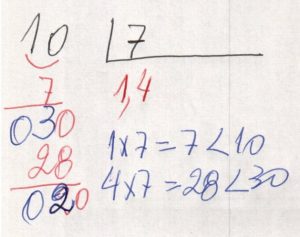 10 7
7 1,4
030 1x7=7<10
28 4x7=28<30
020